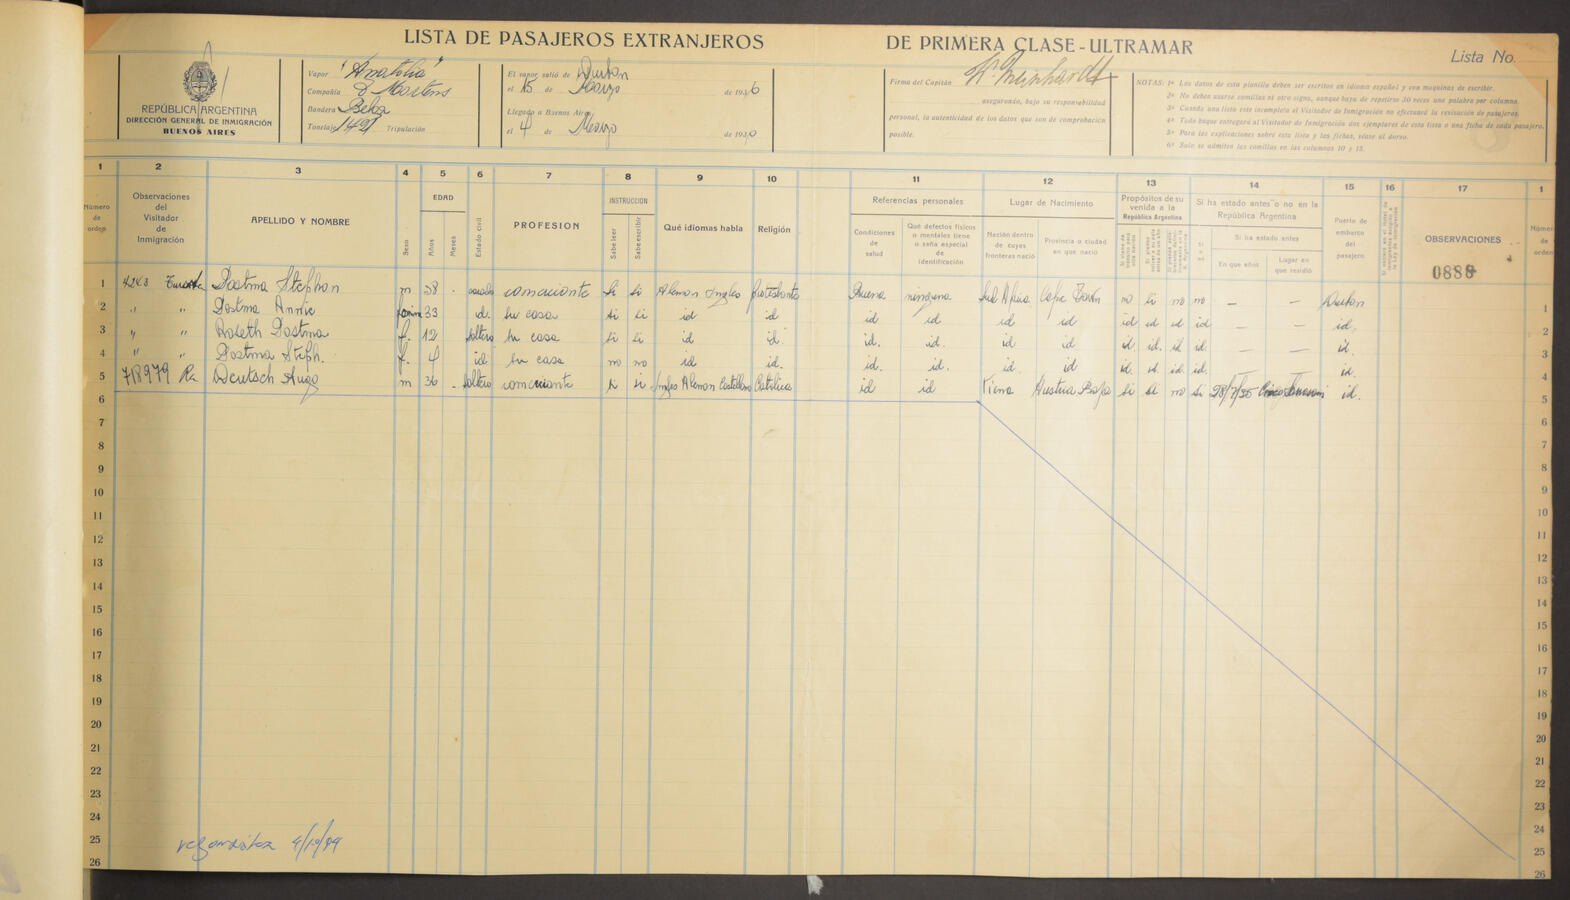 LISTA DE PASAJEROS EXTRANJEROS DE PRIMERA CLASE-ULTRAMAR
Lista No.
REPÚBLICA ARGENTINA
DIRECCIÓN GENERAL DE INMIGRACIÓN
BUENOS AIRES
Vapor "Anatolia"
Compañía J Martens
Bandera Belga
Tonelaje Tripulación
El vapor salió de Durban
el 15 de Marzo de 1936
Llegado a Buenos Aires
el 4 de Marzo de 193
Firma del Capitán
asegurando, bajo su responsabilidad
personal, la autenticidad de los datos que son de comprobación
posible.
NOTAS: 1ª Los datos de esta planilla deben ser escritos en idioma español y con maquina de escribir.
2ª No deben usarse comillas ni otro signo, aunque haya de repetirse 30 veces una palabra por columna.
3ª Cuando una lista esté incompleta el Visitador de Inmigración no efectuará la revisación de pasajeros.
4ª Todo buque entregará al Visitador de Inmigración dos ejemplares de esta lista o una ficha de cada pasajero.
5ª Para las explicaciones sobre esta lista y las fichas, véase al dorso.
6ª Solo se admiten las comillas en las columnas 10 y 15.
1 2 3 4 5 6 7 8 9 10 11 12 13 14 15 16 17 1
Número de orden
Observaciones del Visitador de Inmigración
APELLIDO Y NOMBRE
Sexo
EDAD
Años
Meses
Estado civil
PROFESION
INSTRUCCION
Sabe leer
Sabe escribir
Qué idiomas habla
Religión
Referencias personales
Condiciones de salud
Qué defectos físicos o mentales tiene o seña especial de identificación
Lugar de Nacimiento
Nación dentro de cuyas fronteras nació
Provincia o ciudad en que nació
Propósitos de su venida a la República Argentina
Si ha estado antes o no en la República Argentina
Si ha estado antes
En que años
Lugar en que residió
Puerto de embarco del pasajero
OBSERVACIONES
Número de orden
0888
1 4243 Turista Postma Stephan m 38 - casado comerciante si si Aleman Ingles protestante Buena ninguna Sud Africa Cape Town no si no no — — Durban 1
2 " " Postma Annie 33 id. su casa si si id id id id id id id id id id — — id. 2
3 " " Roseth Postma f. 12 soltera su casa si si id id. id. id. id id id. id. id id. — — id. 3
4 " " Postma Steph. f. 4 id su casa no no id id. id. id. id. id id. id. id. id. id. 4
5 718979 Ra Deutsch Hugo m 36 - soltero comerciante si si Ingles Aleman Castellano Catolica id id Viena Austria Baja si si no si 28/7/35 id. 5
6 6
7 7
8 8
9 9
10 10
11 11
12 12
13 13
14 14
15 15
16 16
17 17
18 18
19 19
20 20
21 21
22 22
23 23
24 24
25 25
26 26
4/10/94